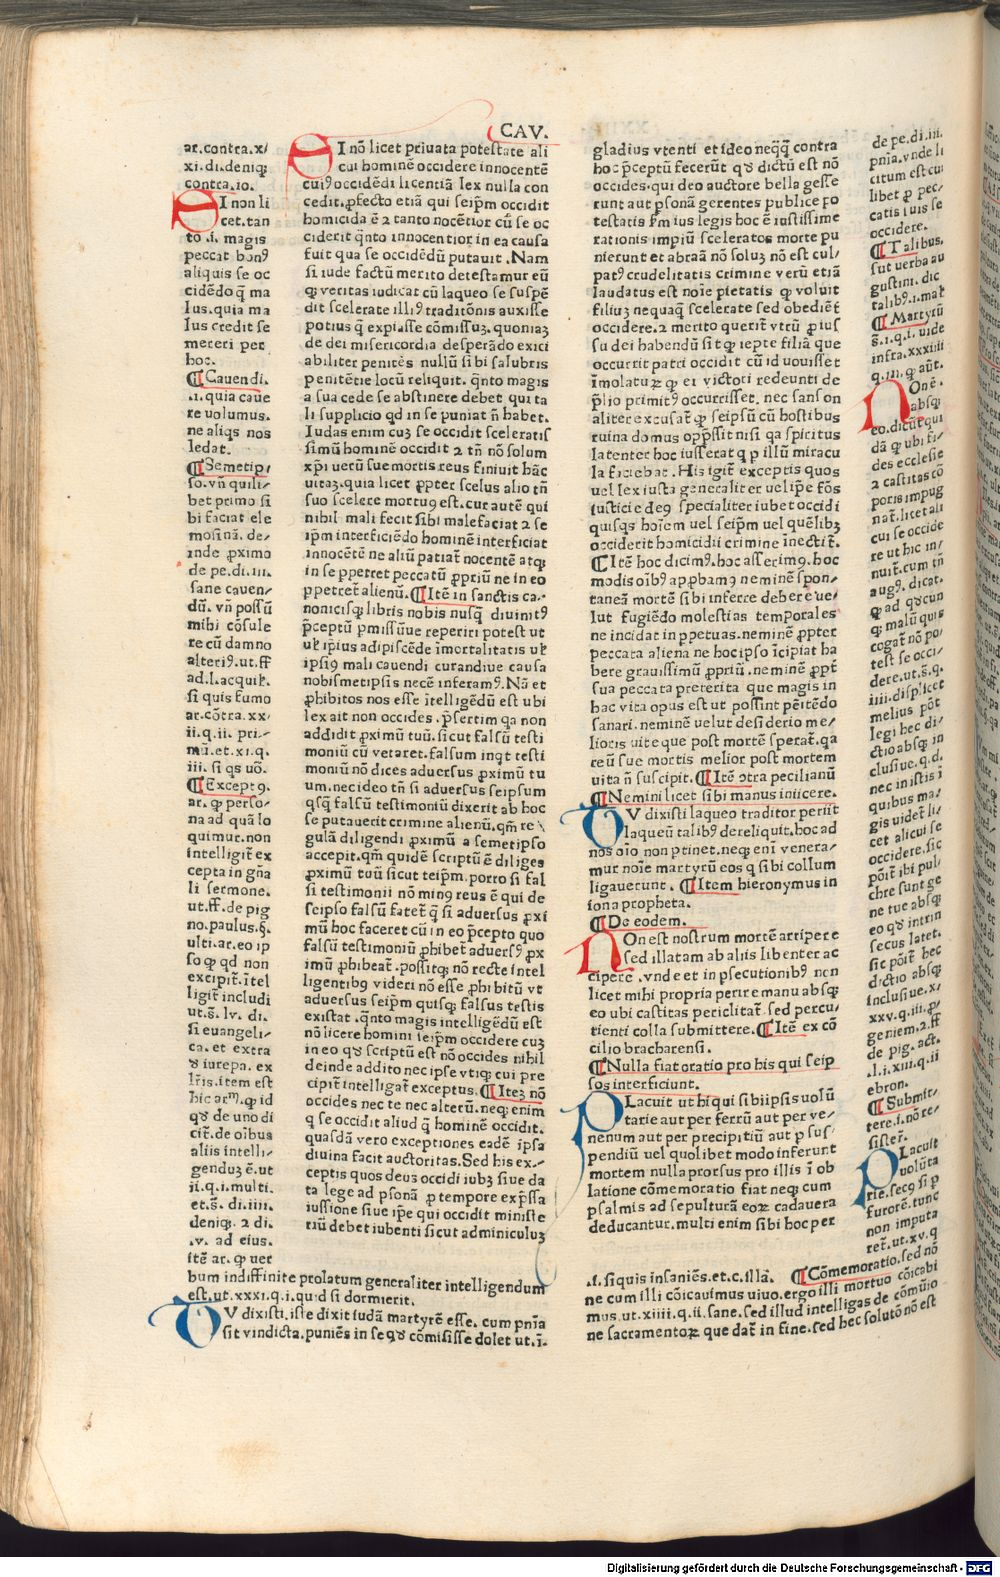 CAV.
ar.contra.x/
xi.di.deniqꝫ
contra.io.
SI non li
cet.tan
to .i. magis
peccat bonꝰ
aliquis se oc
cidēdo q̄ ma
lus.quia ma
lus credit se
mereri per
hoc.
¶Cauendi.
.i.quia caue
re uolumus.
ne aliqs nos
ledat.
¶Semetip/
so.vn̄ quili/
bet primo si
bi faciat ele
mosinā. de/
inde ꝓximo
de pe.di.iii.
sane cauen/
dū. vn̄ possū
mihi cōsule
re cū damno
alteriꝰ.ut.ff
ad.l.acquil.
si quis fumo
ar.cōtra.xx/
ii.q.ii. pri/
mū.et.xi.q.
iii. si qs uō.
¶Exceptꝰ.
ar. ꝙ perso/
na ad quā lo
quimur.non
intelligit̄ ex
cepta in gn̄a
li sermone.
ut.ff.de pig
no.paulus.§.
ulti.ar.eo ip
so ꝙ qd non
excipit̄.ītel
ligit̄ includi
ut.§. lv. di.
si euangeli/
ca. et extra
hic arᵐ. ꝙ id
qđ de uno di
cit̄.de oībus
aliis intelli/
genduꝫ ē.ut
ii.q.i.multi.
et.§. di.iiii.
deniqꝫ. 2 di.
.v. ad eius.
itē ar. ꝙ uer
bum indiffinite prolatum generaliter intelligendum
est.ut.xxxi.q.i.quid si dormierit.
TV dixisti.iste dixit iudā martyrē esse. cum pn̄ia
sit vindicta.puniēs in se qđ cōmisisse dolet ut.ī.
SI nō licet priuata potestate ali
cui hominē occidere innocentē
cuiꝰ occidēdi licentiā lex nulla con
cedit.ꝓfecto etiā qui seip̄m occidit
homicida ē 2 tanto nocētior cū se oc
ciderit q̄nto innocentior in ea causa
fuit qua se occidēdū putauit .Nam
si iude factū merito detestamur eū
ꝙ veritas iudicat cū laqueo se suspē
dit scelerate illiꝰ traditōnis auxisse
potius q̄ expiasse cōmissuꝫ.quoniaꝫ
de dei misericordia desperādo exici
abiliter penitēs nullū sibi salubris
penitētie locū reliquit. q̄nto magis
a sua cede se abstinere debet qui ta
li supplicio qd in se puniat n̄ habet.
Iudas enim cuꝫ se occidit sceleratis
simū hominē occidit 2 tn̄ nō solum
xp̄i uerū sue mortis reus finiuit hāc
uitaꝫ.quia licet ꝓpter scelus alio tn̄
suo scelere mortuꝰ est.cur autē qui
nihil mali fecit sibi malefaciat 2 se
ip̄m interficiēdo hominē interficiat
innocētē ne aliū patiat̄ nocentē atqꝫ
in se ꝑpetret peccatū ꝓpriū ne in eo
ꝑpetret̄ alienū. ¶Itē in sanctis ca/
nonicisqꝫ libris nobis nusq̄ diuinitꝰ
p̄ceptū ꝑmissūue reperiri potest ut
ul̓ ip̄ius adipiscēde īmortalitatis ul̓
ipsiꝰ mali cauendi curandiue causa
nobismetipsis necē inferamꝰ. Nā et
ꝓhibitos nos esse ītelligēdū est ubi
lex ait non occides .p̄sertim qa non
addidit ꝓximū tuū.sicut falsū testi
moniū cū vetaret.falsum inqt testi
moniū nō dices aduersus ꝓximū tu
um.nec ideo tn̄ si aduersus seipsum
qsq̄ falsū testimoniū dixerit ab hoc
se putauerit crimine alienū.qm̄ re
gulā diligendi ꝓximū a semetipso
accepit.qm̄ quidē scriptū ē diliges
ꝓximū tuū sicut teip̄m. porro si fal
si testimonii nō minꝰ reus ē qui de
seipso falsū fatet̄ q̄ si aduersus ꝓxi
mū hoc faceret cū in eo p̄cepto quo
falsū testimoniū ꝓhibet̄ aduersꝰ ꝓx
imū ꝓhibeat̄.possitqꝫ nō recte intel
ligentibꝰ videri nō esse ꝓhibitū vt
aduersus seip̄m quisqꝫ falsus testis
existat .q̄nto magis intelligēdū est
nō licere homini seip̄m occidere cuꝫ
in eo qđ scriptū est nō occides nihil
deinde addito nec ipse vtiqꝫ cui pre
cipit̄ intelligat̄ exceptus. ¶Iteꝫ nō
occides nec te nec alterū.neqꝫ enim
q se occidit aliud q̄ hominē occidit.
quasdā vero exceptiones eadē ip̄sa
diuina facit auctoritas. Sed his ex/
ceptis quos deus occidi iubꝫ siue da
ta lege ad ꝑsonā ꝓ tempore exp̄ssa
iussione siue ip̄e qui occidit ministe
riū debet iubenti sicut adminiculuꝫ
gladius vtenti et ideo neq̄q̄ contra
hoc p̄ceptū fecerūt qđ dictū est nō
occides.qui deo auctore bella gesse
runt aut ꝑsonā gerentes publice po
testatis ẜm ius legis hoc ē iustissime
rationis impiū sceleratos morte pu
nierunt et abraā nō soluꝫ nō est cul/
patꝰ crudelitatis crimine verū etiā
laudatus est noīe pietatis ꝙ voluit
filiuꝫ nequaq̄ scelerate sed obediēt̄
occidere.2 merito querit̄ vtrū ꝓ ius
su dei habendū sit ꝙ iepte filiā que
occurrit patri occidit cū id uouisset
īmolaturꝫ ꝙ ei victori redeunti de
p̄lio primitꝰ occurrisset. nec sanson
aliter excusat̄ ꝙ seipsū cū hostibus
ruina domus opp̄ssit nisi qa spiritus
latenter hoc iusserat q ꝑ illū miracu
la faciebat .His igit̄ exceptis quos
uel lex iusta generaliter uel ip̄e fōs
iusticie deꝰ specialiter iubet occidi
quisqꝫ hoīem uel seip̄m uel quēlibꝫ
occiderit homicidii crimine īnectit̄.
¶Itē hoc dicimꝰ.hoc asserimꝰ.hoc
modis oībꝰ approbamꝰ neminē spon/
taneā mortē sibi inferre debere ue/
lut fugiēdo molestias temporales
ne incidat in ꝑpetuas.neminē ꝓpter
peccata aliena ne hoc ipso īcipiat ha
bere grauissimū ꝓpriū. neminē ꝓpt̄
sua peccata preterita que magis in
hac vita opus est ut possint pēitēdo
sanari.neminē uelut desiderio me/
lioris uite que post mortē sperat̄.qa
reū sue mortis melior post mortem
uita n̄ suscipit. ¶Itē cōtra pecilianū
¶Nemini licet sibi manus iniicere.
TV dixisti laqueo traditor periit
laqueū talibꝰ dereliquit.hoc ad
nos oīo non ptinet.neqꝫ eni venera/
mur noīe martyrū eos q sibi collum
ligauerunt. ¶Item hieronymus in
iona propheta.
¶De eodem.
NOn est nostrum mortē arripere
sed illatam ab aliis libenter ac
cipere .vnde et in ꝑsecutionibꝰ non
licet mihi propria perire manu absqꝫ
eo ubi castitas periclitat̄. sed percu/
tienti colla submittere. ¶Itē ex cō
cilio bracharensi.
¶Nulla fiat oratio pro his qui seip
sos interficiunt.
PLacuit ut hi qui sibi ip̄sis uolū
tarie aut per ferrū aut per ve/
nenum aut per precipitiū aut ꝑ sus/
pendiū uel quolibet modo inferunt
mortem nulla prorsus pro illis ī ob
latione cōmemoratio fiat neqꝫ cum
psalmis ad sepulturā eoꝝ cadauera
deducantur.multi enim sibi hoc per
.i.si quis insaniēs.et.c.illā. ¶Cōmemoratio.sed nō
ne cum illi cōicauimus uiuo.ergo illi mortuo cōicabi
mus.ut.xiiii.q.ii.sane.sed illud intelligas de cōmuio
ne sacramentoꝝ que dat̄ in fine.sed hec solutō nō est
de pe.di.iii.
citum est cui
libet ꝓ pec/
catis suis se
occidere.
¶Talibus.
sut uerba au
gustini. dic
talibꝰ.i.mal̓
¶Martyrū
§.i.q.i. uide
infra.xxxiiii
NOnē.
absqꝫ
eo.dicūt qui
dā ꝙ ubi fi/
des ecclesie
2 castitas cō
poris impug
nat̄.licet ali
cui se occide
re ut hic in/
nuit.cum tn̄
augꝰ. dicat.
ꝙ ad qđcun
qꝫ malū quis
cogat̄ nō po/
test se occi/
dere.ut.§.q.
iiii.displicet
melius pōt
legi hec di/
ctio absqꝫ in
clusiue.q.d.
nec in istis ī
quibus ma/
gis uidet̄ li/
cet alicui se
occidere.sic
pōit̄ ibi pul/
chre sunt ge
ne tue absqꝫ
eo qđ intrin
secus latet.
sic pōit̄ hec
dictio absqꝫ
inclusiue.x/
xv.q.iii.ꝓ/
geniem.2 ff
de pig. act.
.l.i.xiii.q.ii
ebron.
¶Submit/
tere.i.nō re/
sister̄.
PLacuit
volūta
rie.secꝰ si ꝑ
furorē.tunc
non imputa
ret̄.ut.xv.q
Digitalisierung gefördert durch die Deutsche Forschungsgemeinschaft - DFG